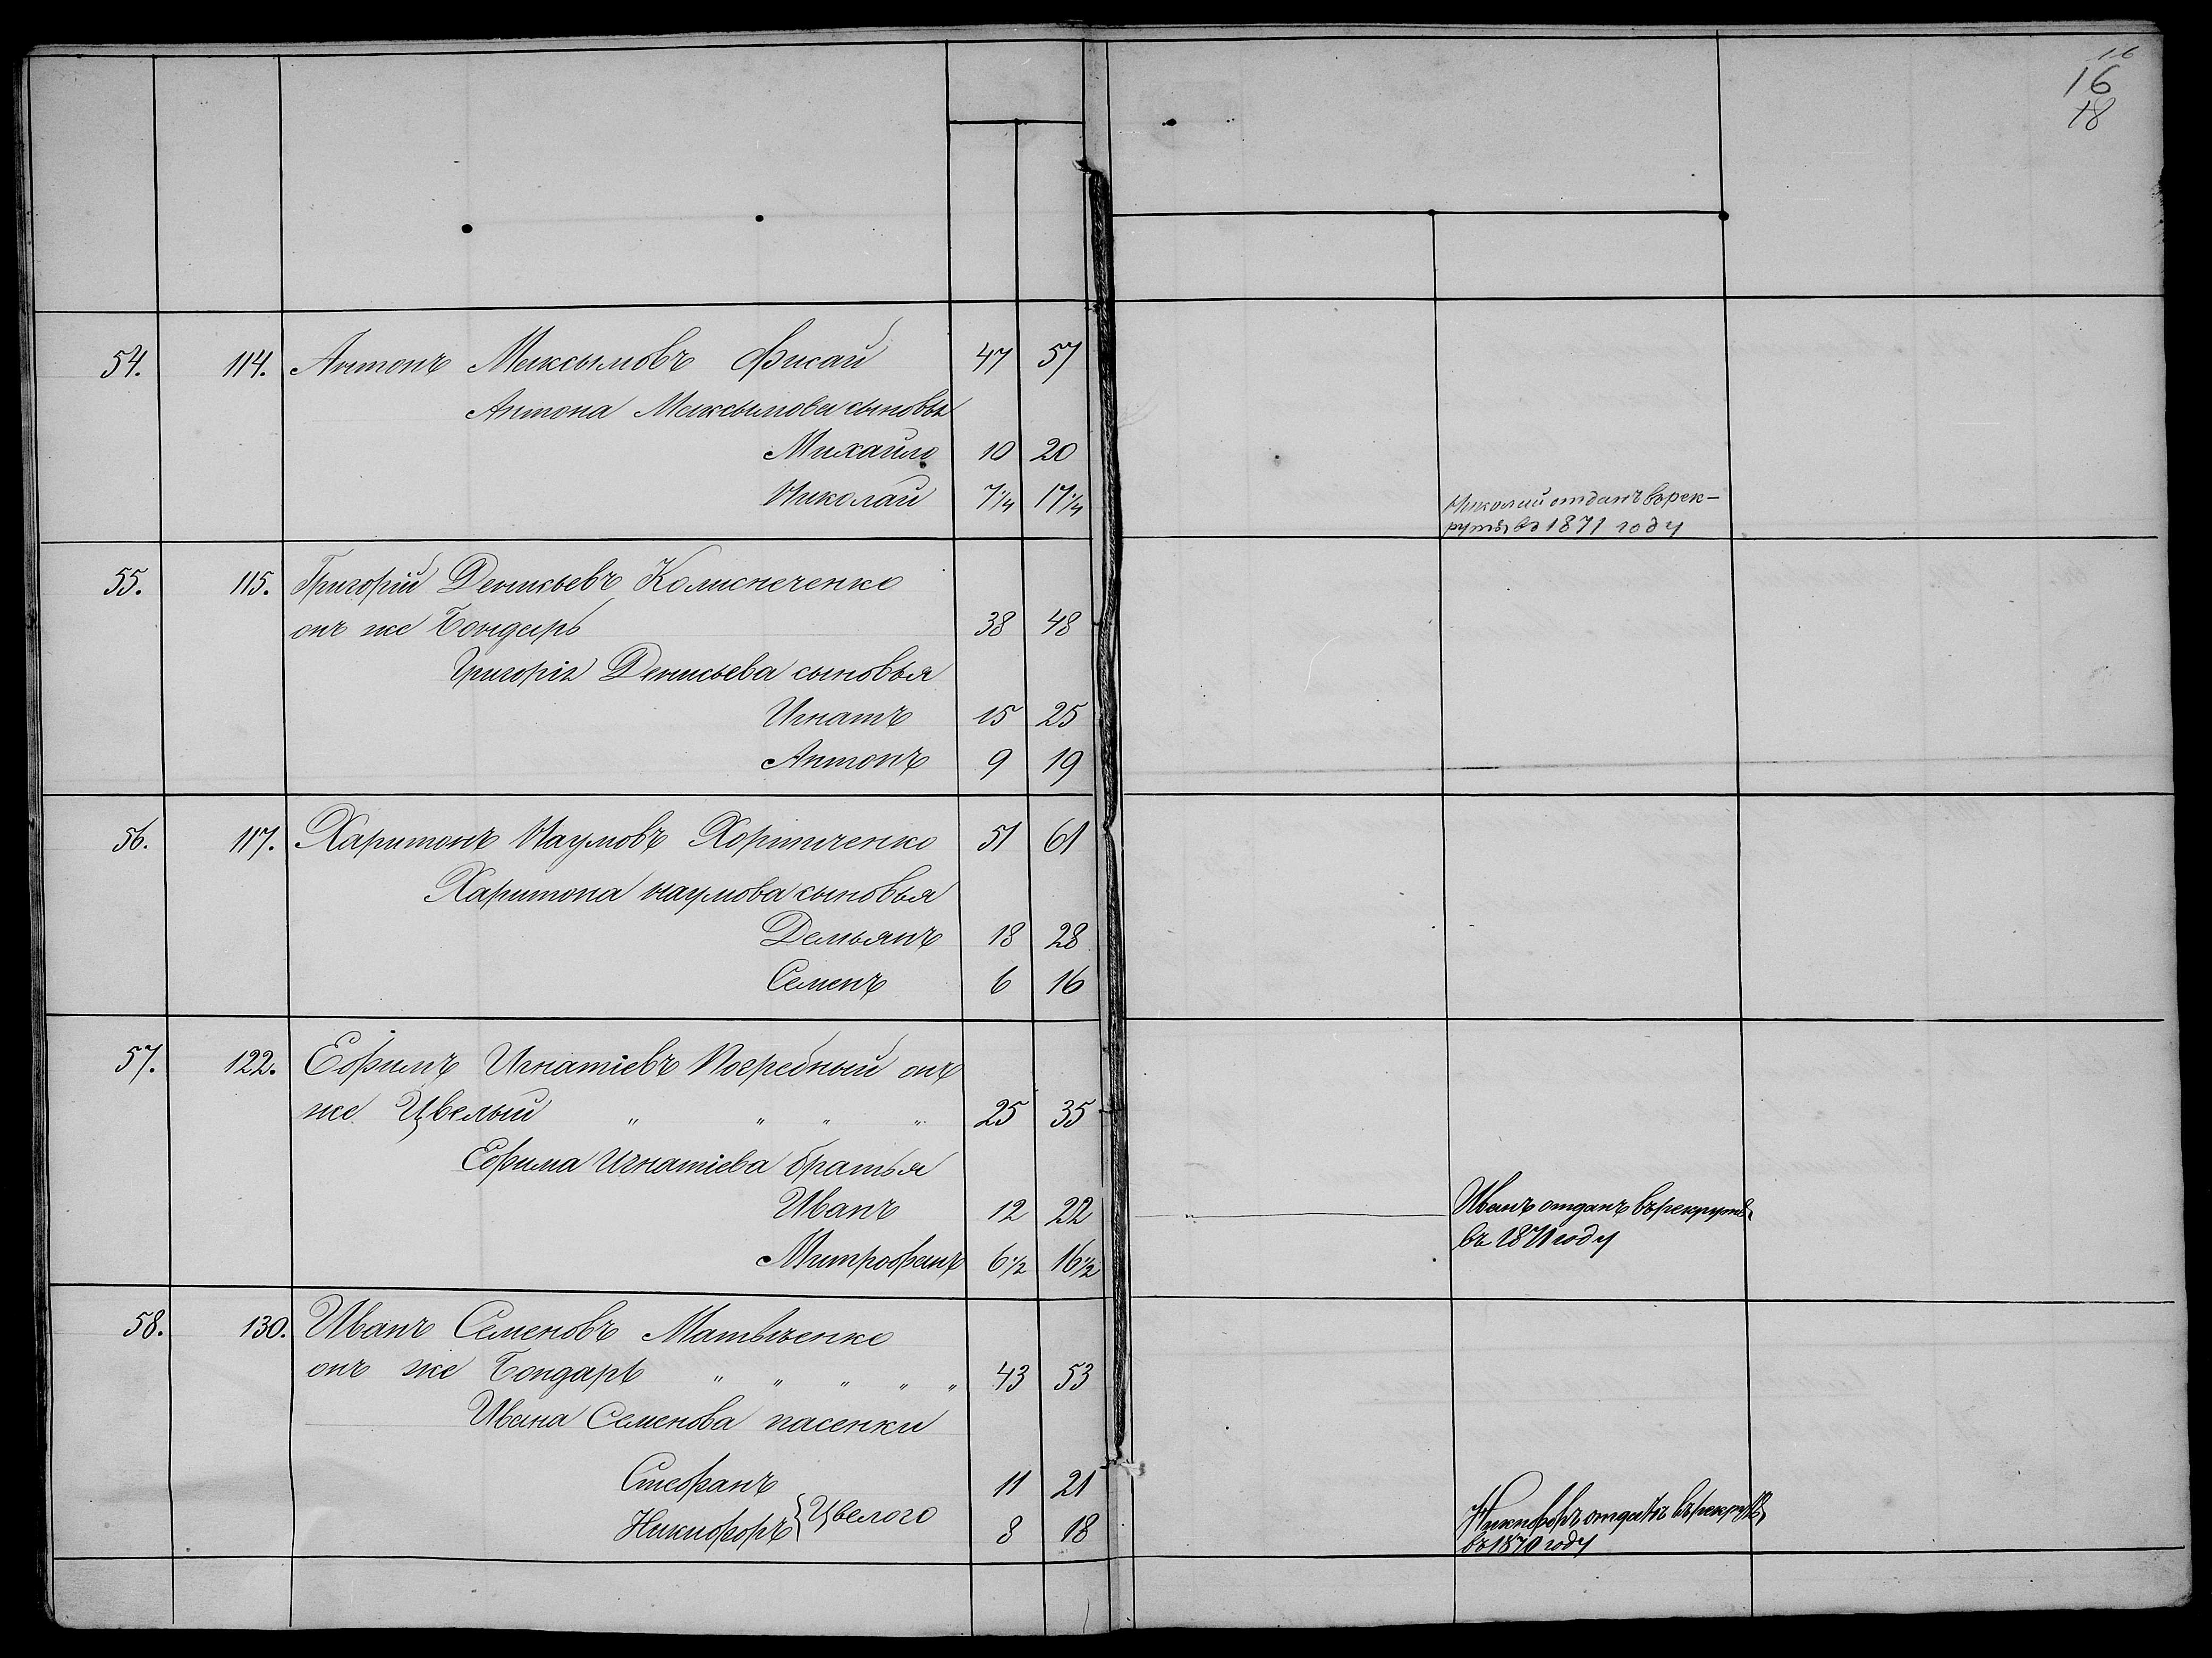 16
16
18
54. 114. Антонъ Максымовъ Фисай 47 57
Антона Максымова сыновья
Михайло 10 20
Николай 7 1/4 17 1/4 Николай отданъ въ рек-
руты въ 1871 году
55. 115. Григорій Денисьевъ Колиснеченко
онъ же Бондарь 38 48
Григорія Денисьева сыновья
Игнатъ 15 25
Антонъ 9 19
56. 117. Харитонъ Наумовъ Хоритченко 51 61
Харитона Наумова сыновья
Демьянъ 18 28
Семенъ 6 16
57. 122. Ефимъ Игнатіевъ Погребный онъ
же Цвелый " " " " 25 35
Ефима Игнатіева братья
Иванъ 12 22 Иванъ отданъ въ рекруты
въ 1871 году
Митрофанъ 6 1/2 16 1/2
58. 130. Иванъ Семеновъ Матвѣенко
онъ же Бондарь " " " " " 43 53
Ивана Семенова пасенки
Стефанъ 11 21
Никифоръ } Цвелого 8 18 Никифоръ отданъ въ рекруты
въ 1870 году